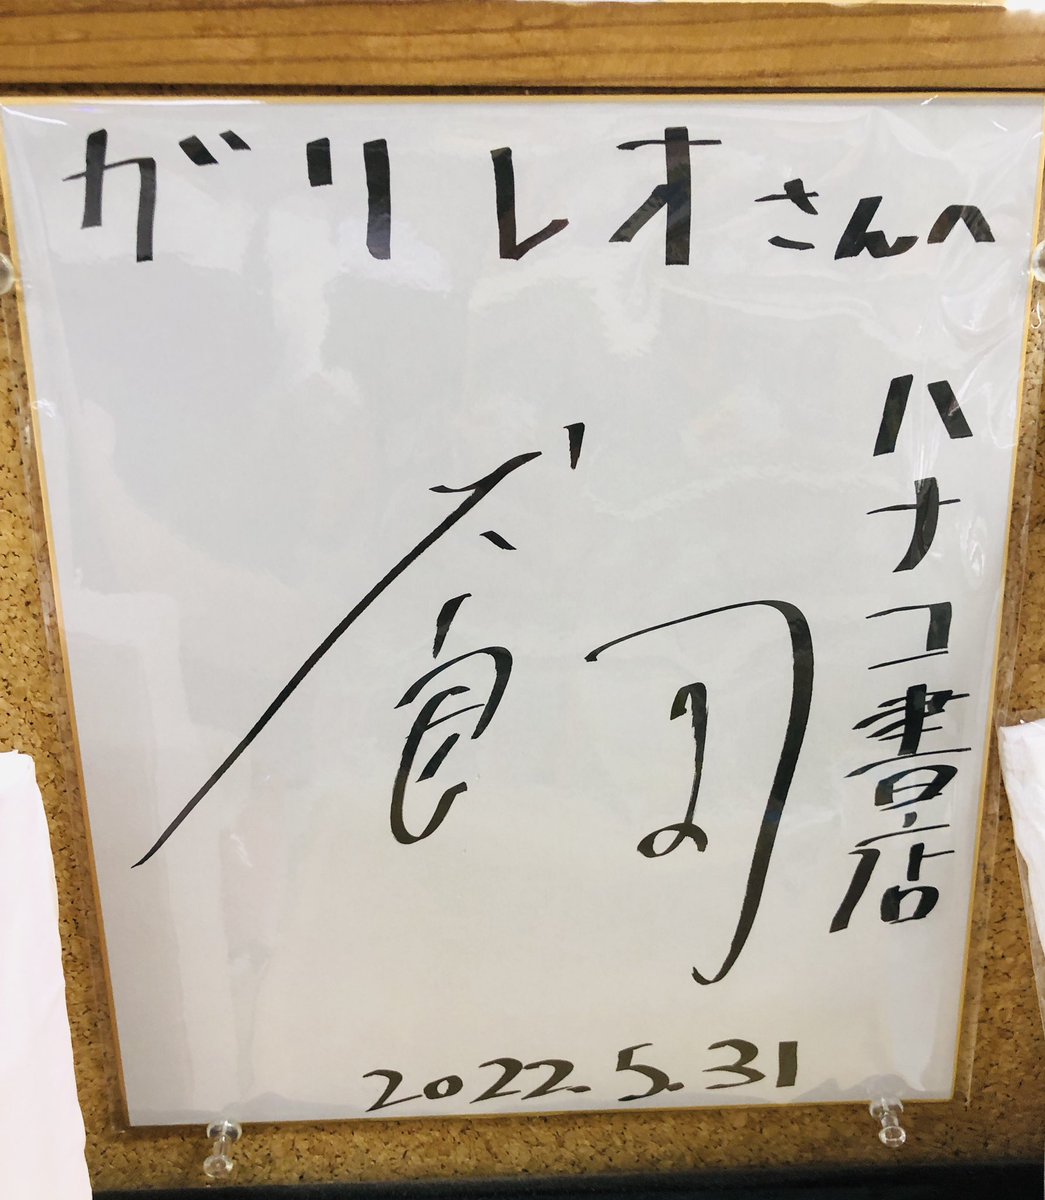 ガリレオさんへ
ハナコ書店
2022.5.31